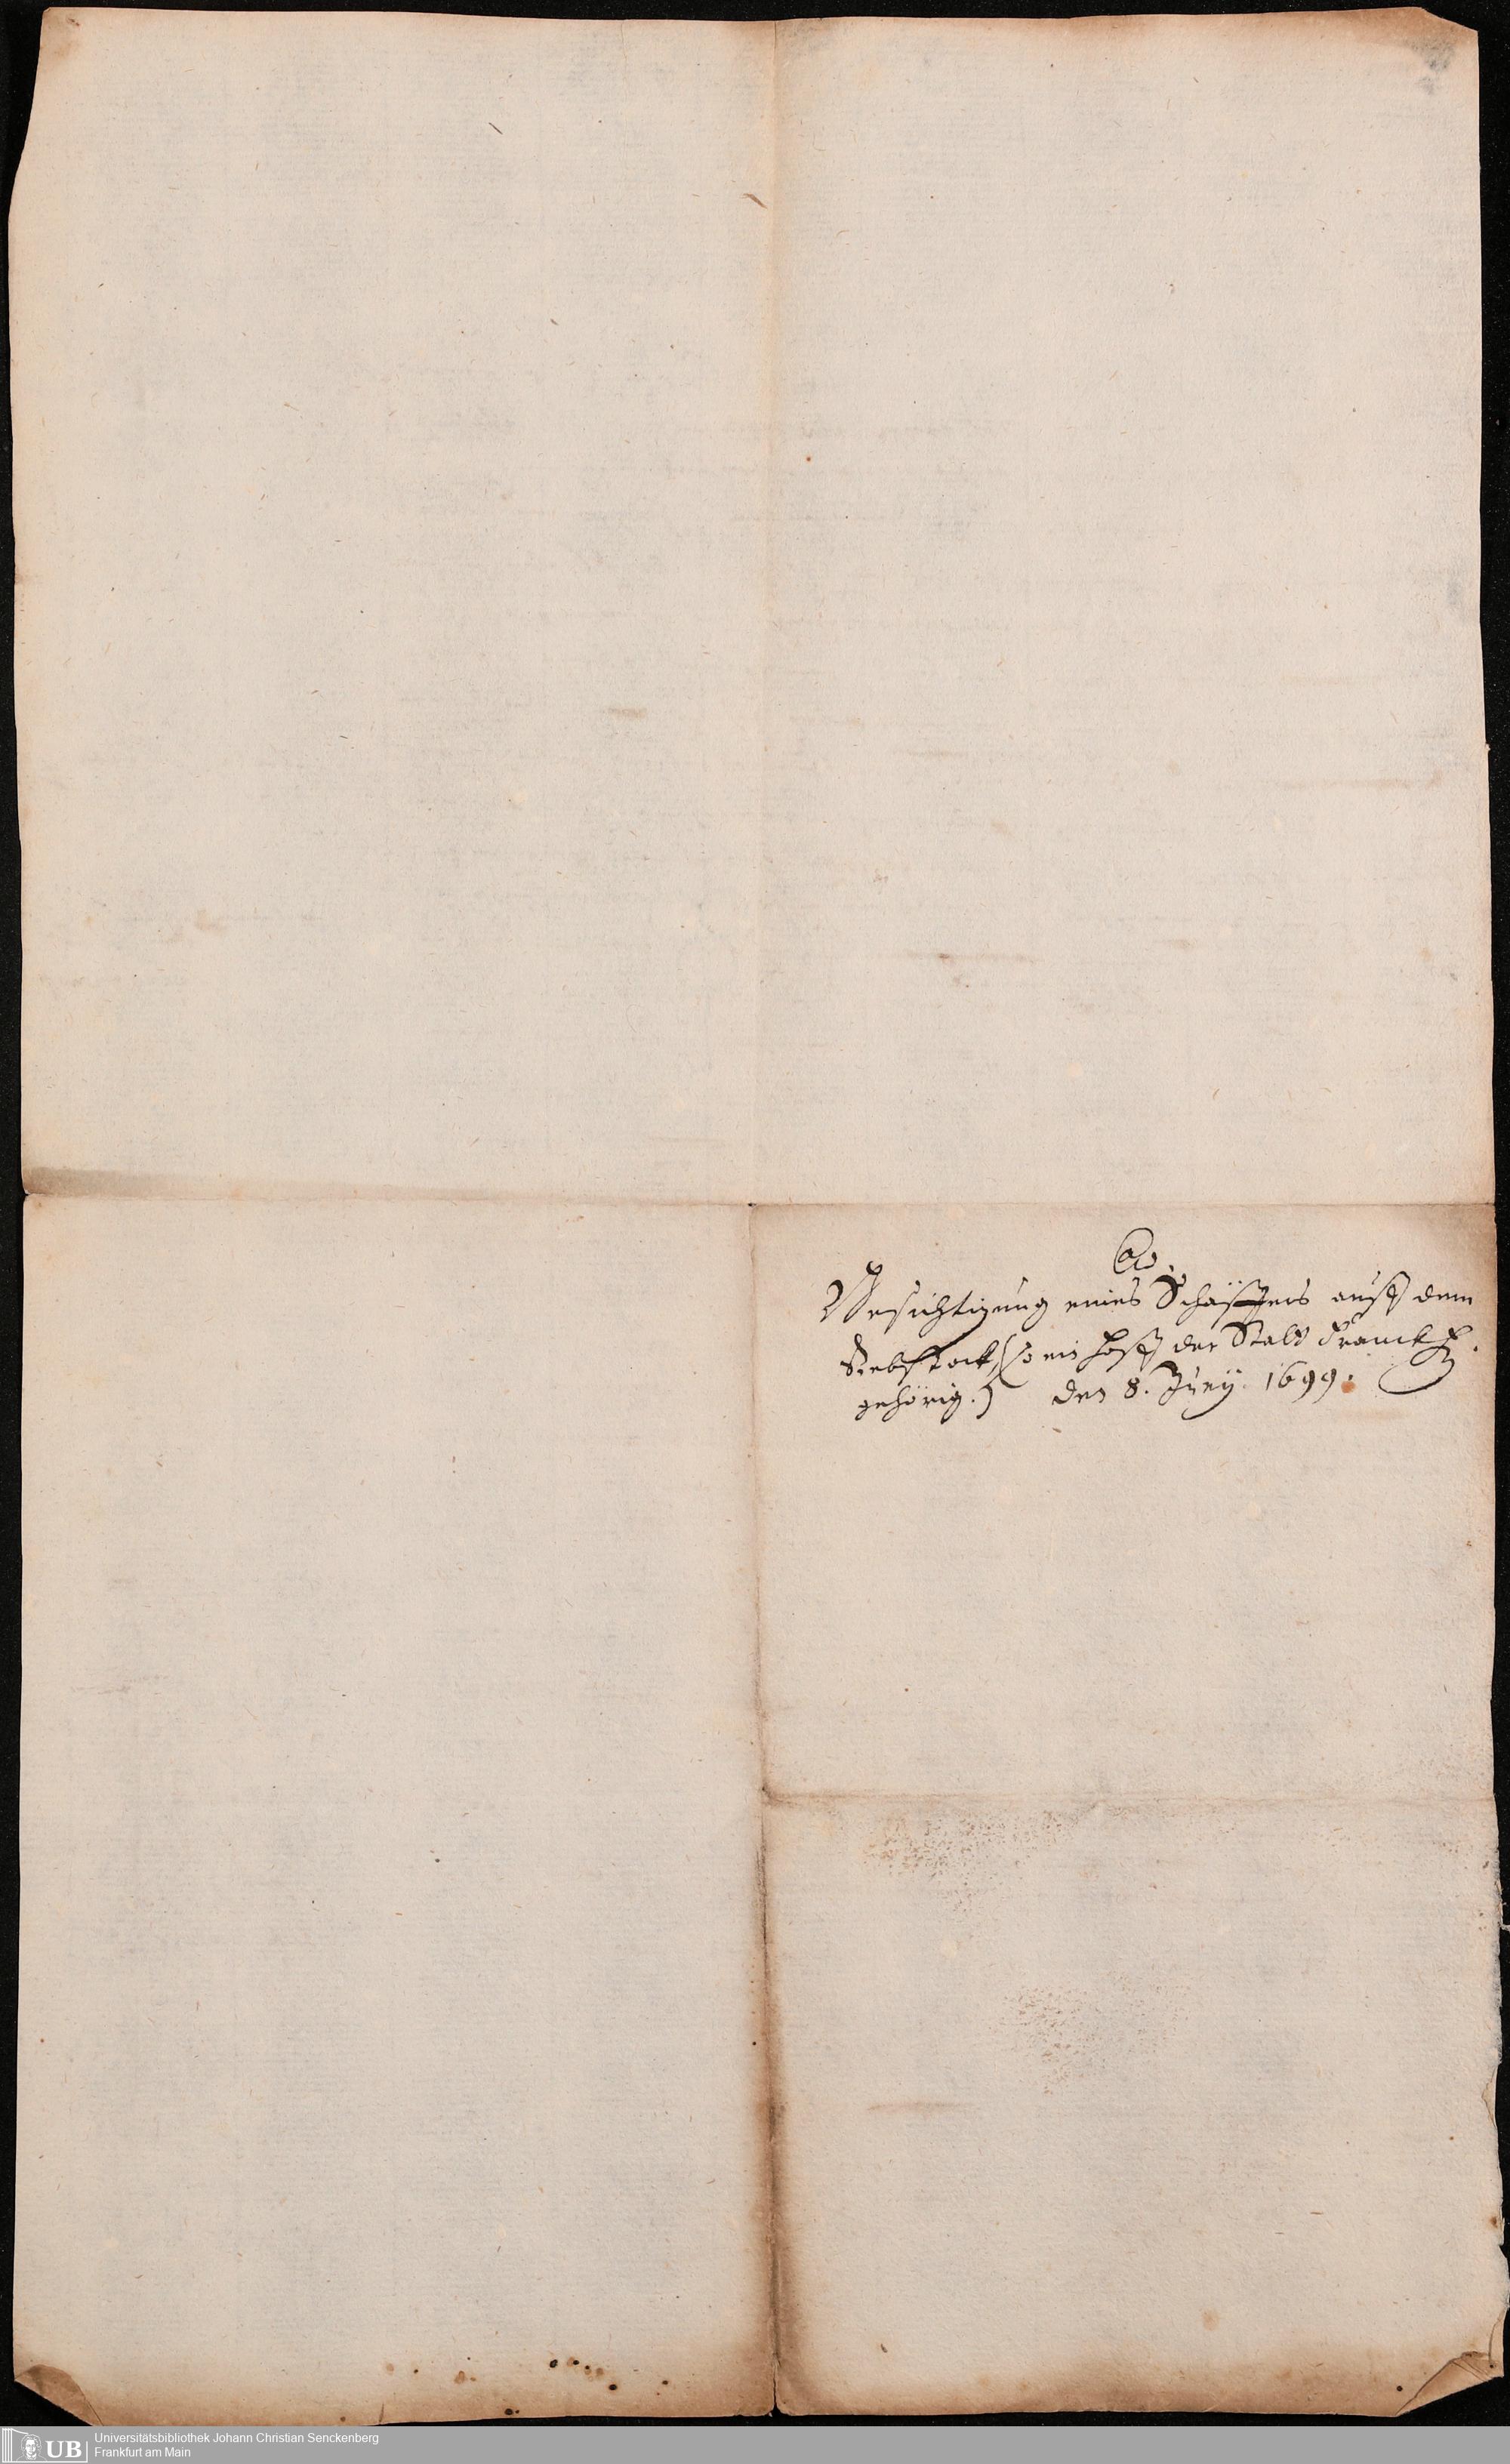 Besichtigung eines Schäffers auff dem
Rebstock, (so ein Hoff der Statt Franckf.
gehörig.) den 8. Juny. 1699.
UB
Universitätsbibliothek Johann Christian Senckenberg
Frankfurt am Main